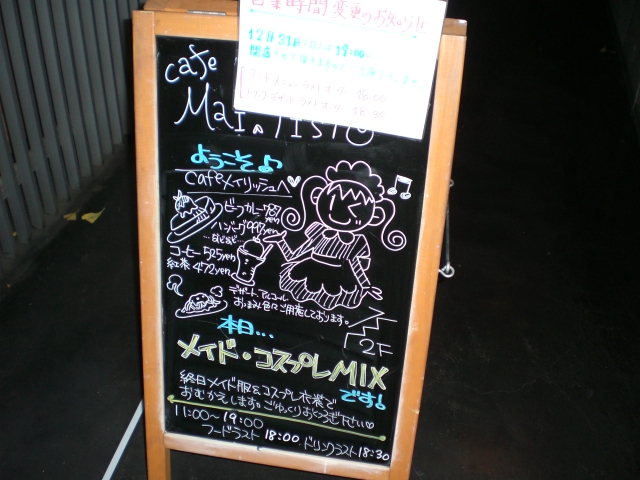 営業時間変更のお知らせ
12月31日 は 19:00に
フードメニューラストオーダー 18:00
ドリンク・デザートラストオーダー 18:30
cafe
Mai
ようこそ♪
cafeメイリッシュへ♥
ビーフカレー 787yen
ハンバーグ 997yen
…などなど…
コーヒー 525yen
紅茶 472yen
デザート、アルコール
おつまみ色々ご用意しております。
2F
本日…
メイド・コスプレMIX
です!
終日メイド服&コスプレ衣装で
おむかえします。ごゆっくりおくつろぎ下さい♡
11:00〜19:00
フードラスト 18:00 ドリンクラスト 18:30